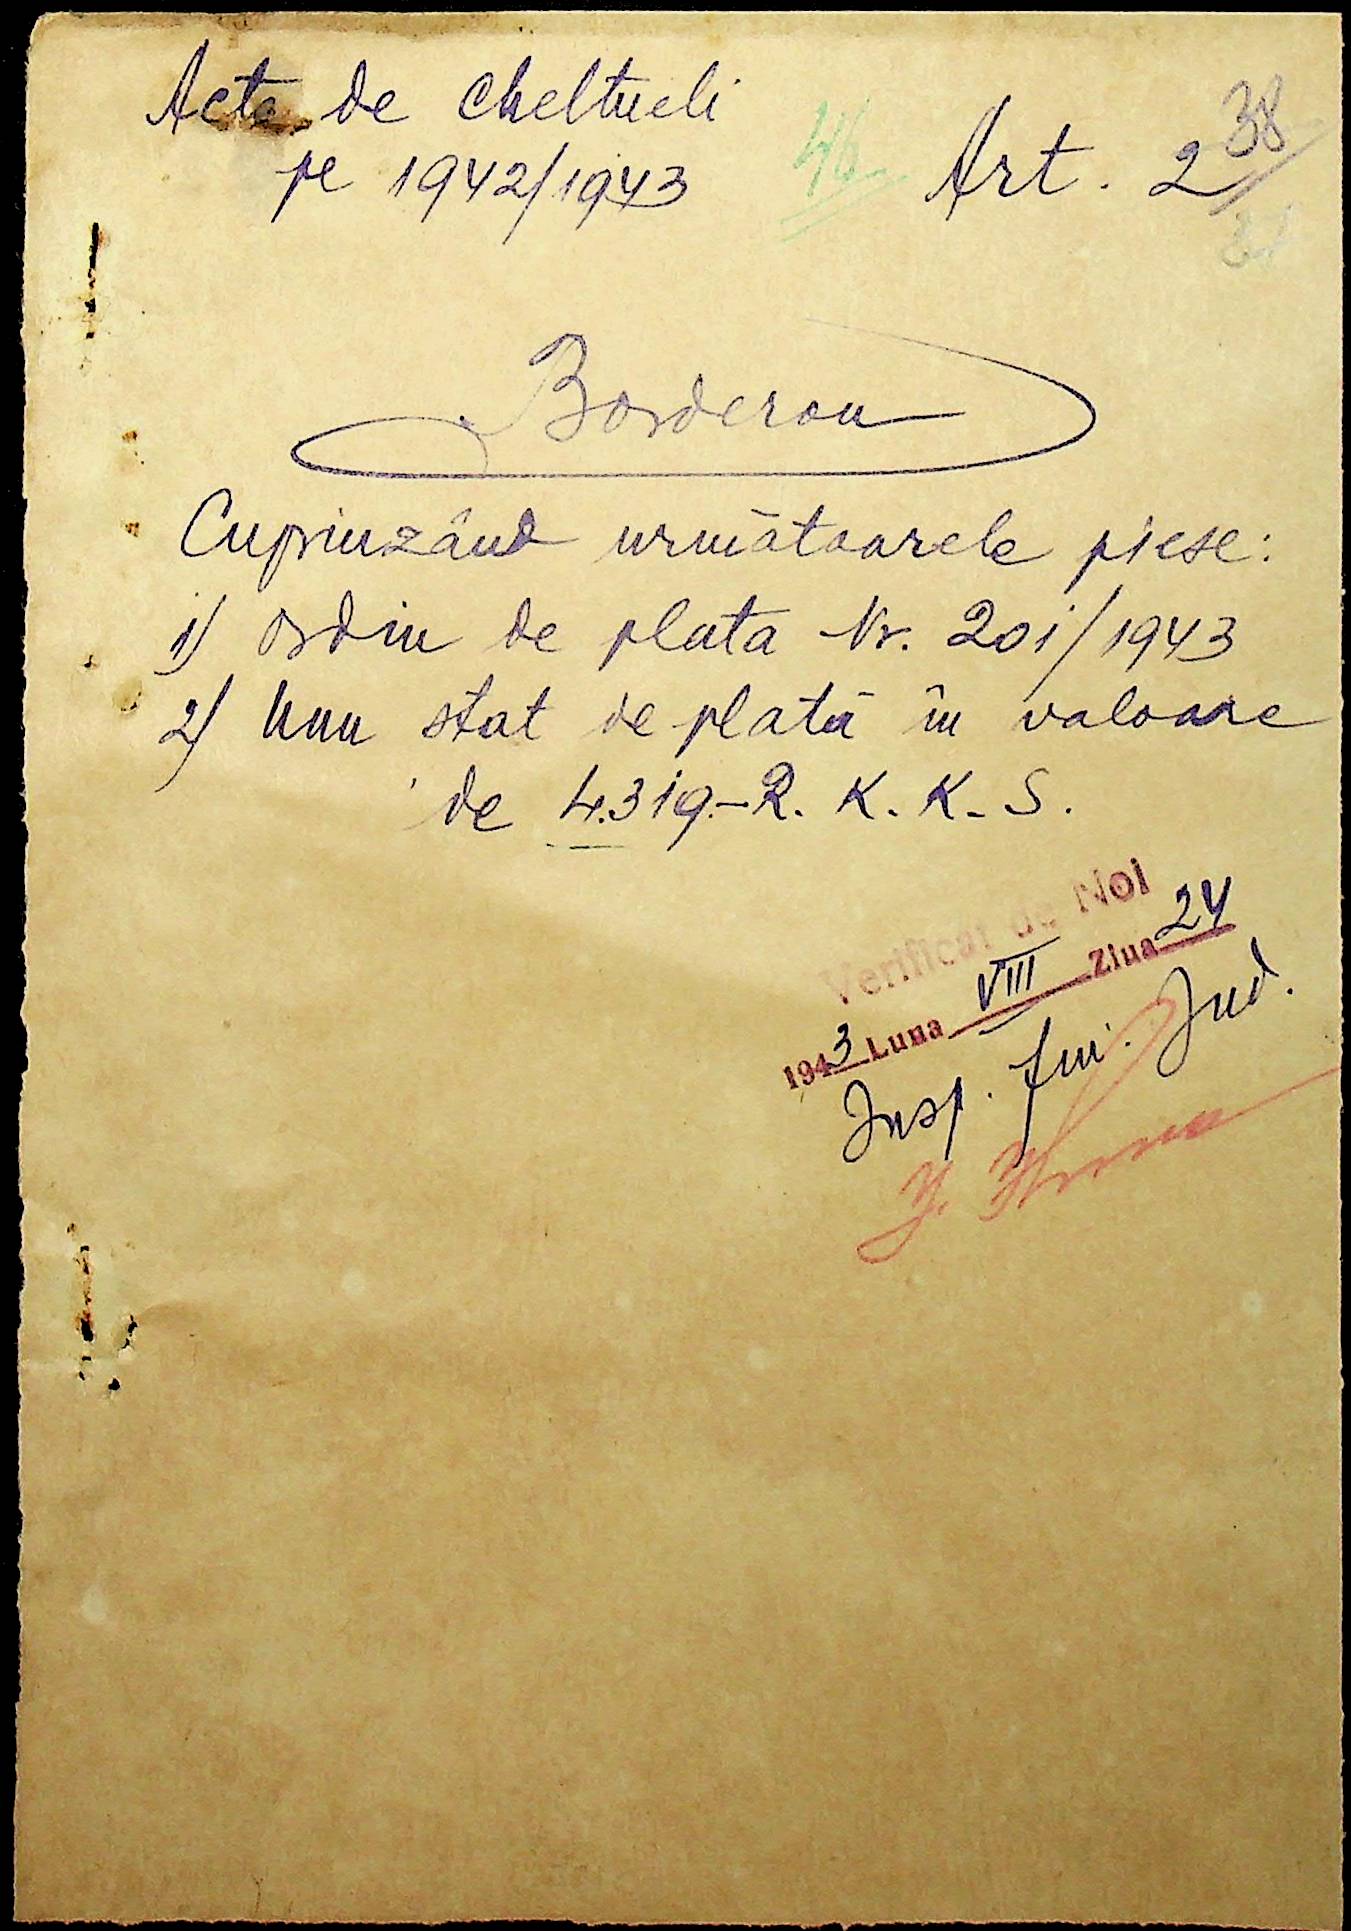 Acte de cheltueli
pe 1942/1943
46
Art. 2
38
Borderou
Cuprinzând următoarele piese:
1) ordin de plata Nr. 201/1943
2) Unu stat de plată în valoare
de 4.319.- R. K. K. S.
Verificat de Noi
1943 Luna VIII Ziua 24
Insp. fin. Jud.